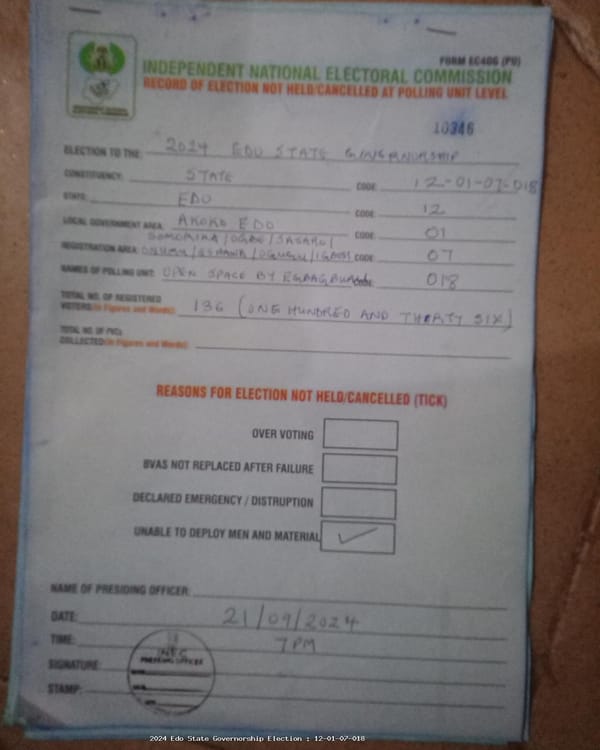 FORM EC40G (PU)
INDEPENDENT NATIONAL ELECTORAL COMMISSION
RECORD OF ELECTION NOT HELD/CANCELLED AT POLLING UNIT LEVEL
10346
ELECTION TO THE: 2024 EDO STATE GOVERNORSHIP
CONSTITUENCY: STATE CODE: 12-01-07-018
STATE: EDO CODE: 12
LOCAL GOVERNMENT AREA: AKOKO EDO CODE: 01
SOMORIKA/OGBE/SASARO/
REGISTRATION AREA: CODE: 07
NAMES OF POLLING UNIT: OPEN SPACE BY CODE: 018
TOTAL NO. OF REGISTERED
VOTERS (In Figures and Words): 136 (ONE HUNDRED AND THIRTY SIX)
TOTAL NO. OF PVCs
COLLECTED (In Figures and Words):
REASONS FOR ELECTION NOT HELD/CANCELLED (TICK)
OVER VOTING
BVAS NOT REPLACED AFTER FAILURE
DECLARED EMERGENCY / DISTRUPTION
UNABLE TO DEPLOY MEN AND MATERIAL
NAME OF PRESIDING OFFICER:
DATE: 21/09/2024
TIME: 7PM
INEC
PRESIDING OFFICER
SIGNATURE:
STAMP:
2024 Edo State Governorship Election : 12-01-07-018